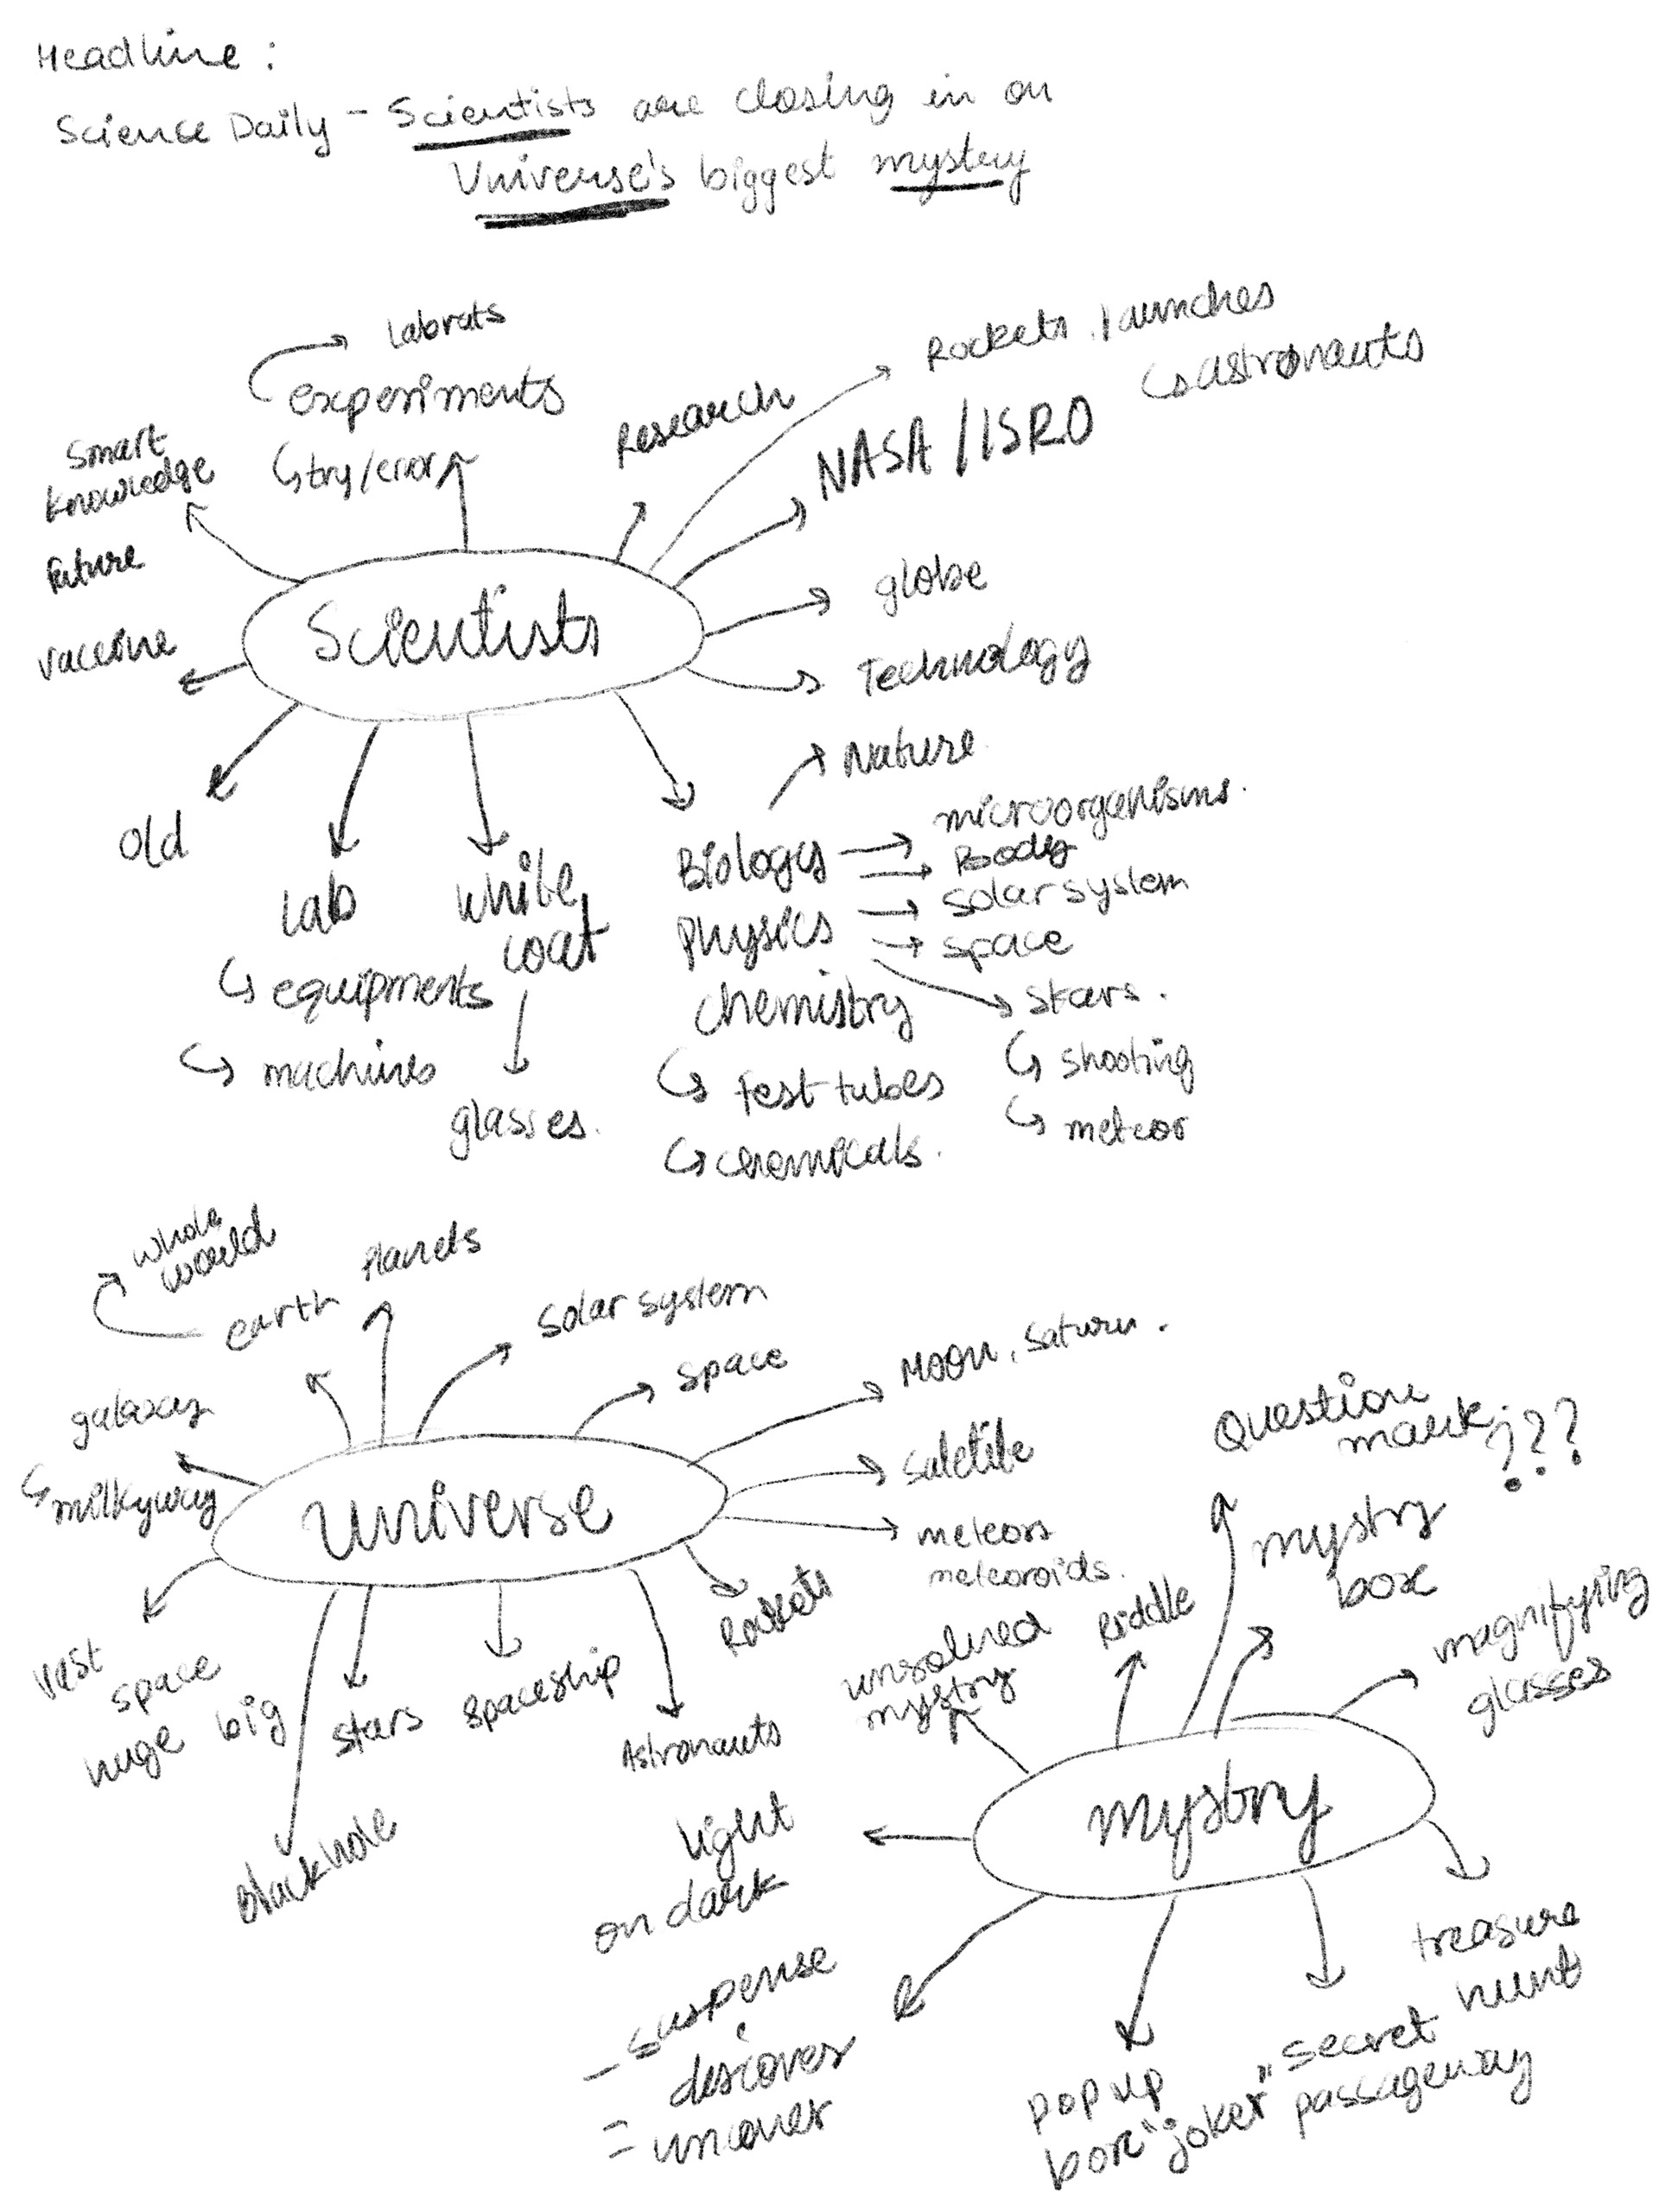 Headline :
Science Daily - Scientists are closing in on
Universe's biggest mystery
labrats
experiments
try/error
Research
Rockets, launches
astronauts
NASA / ISRO
smart
knowledge
future
vaccine
Scientists
globe
Technology
old
lab
equipments
machines
white
coat
glasses.
Nature
Biology
microorganisms.
Body
Physics
solar system
space
stars.
shooting
meteor
chemistry
Test tubes
chemicals.
whole
world
earth
Planets
solar system
space
Moon, Saturn.
galaxy
milkyway
Universe
meteors
meteoroids.
Rockets
vast
space
huge big
stars
spaceship
Astronauts
Blackhole
Question
mark ???
mystry
box
magnifying
glasses
Riddle
unsolved
mystry
mystry
light
on dark
- suspense
discover
= uncover
pop up
box "joker"
secret
passageway
treasure
hunt